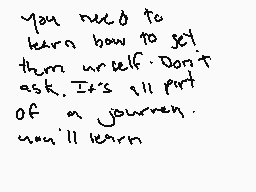 you need to
learn how to get
them urself. Don't
ask. It's all part
of a journey.
you'll learn